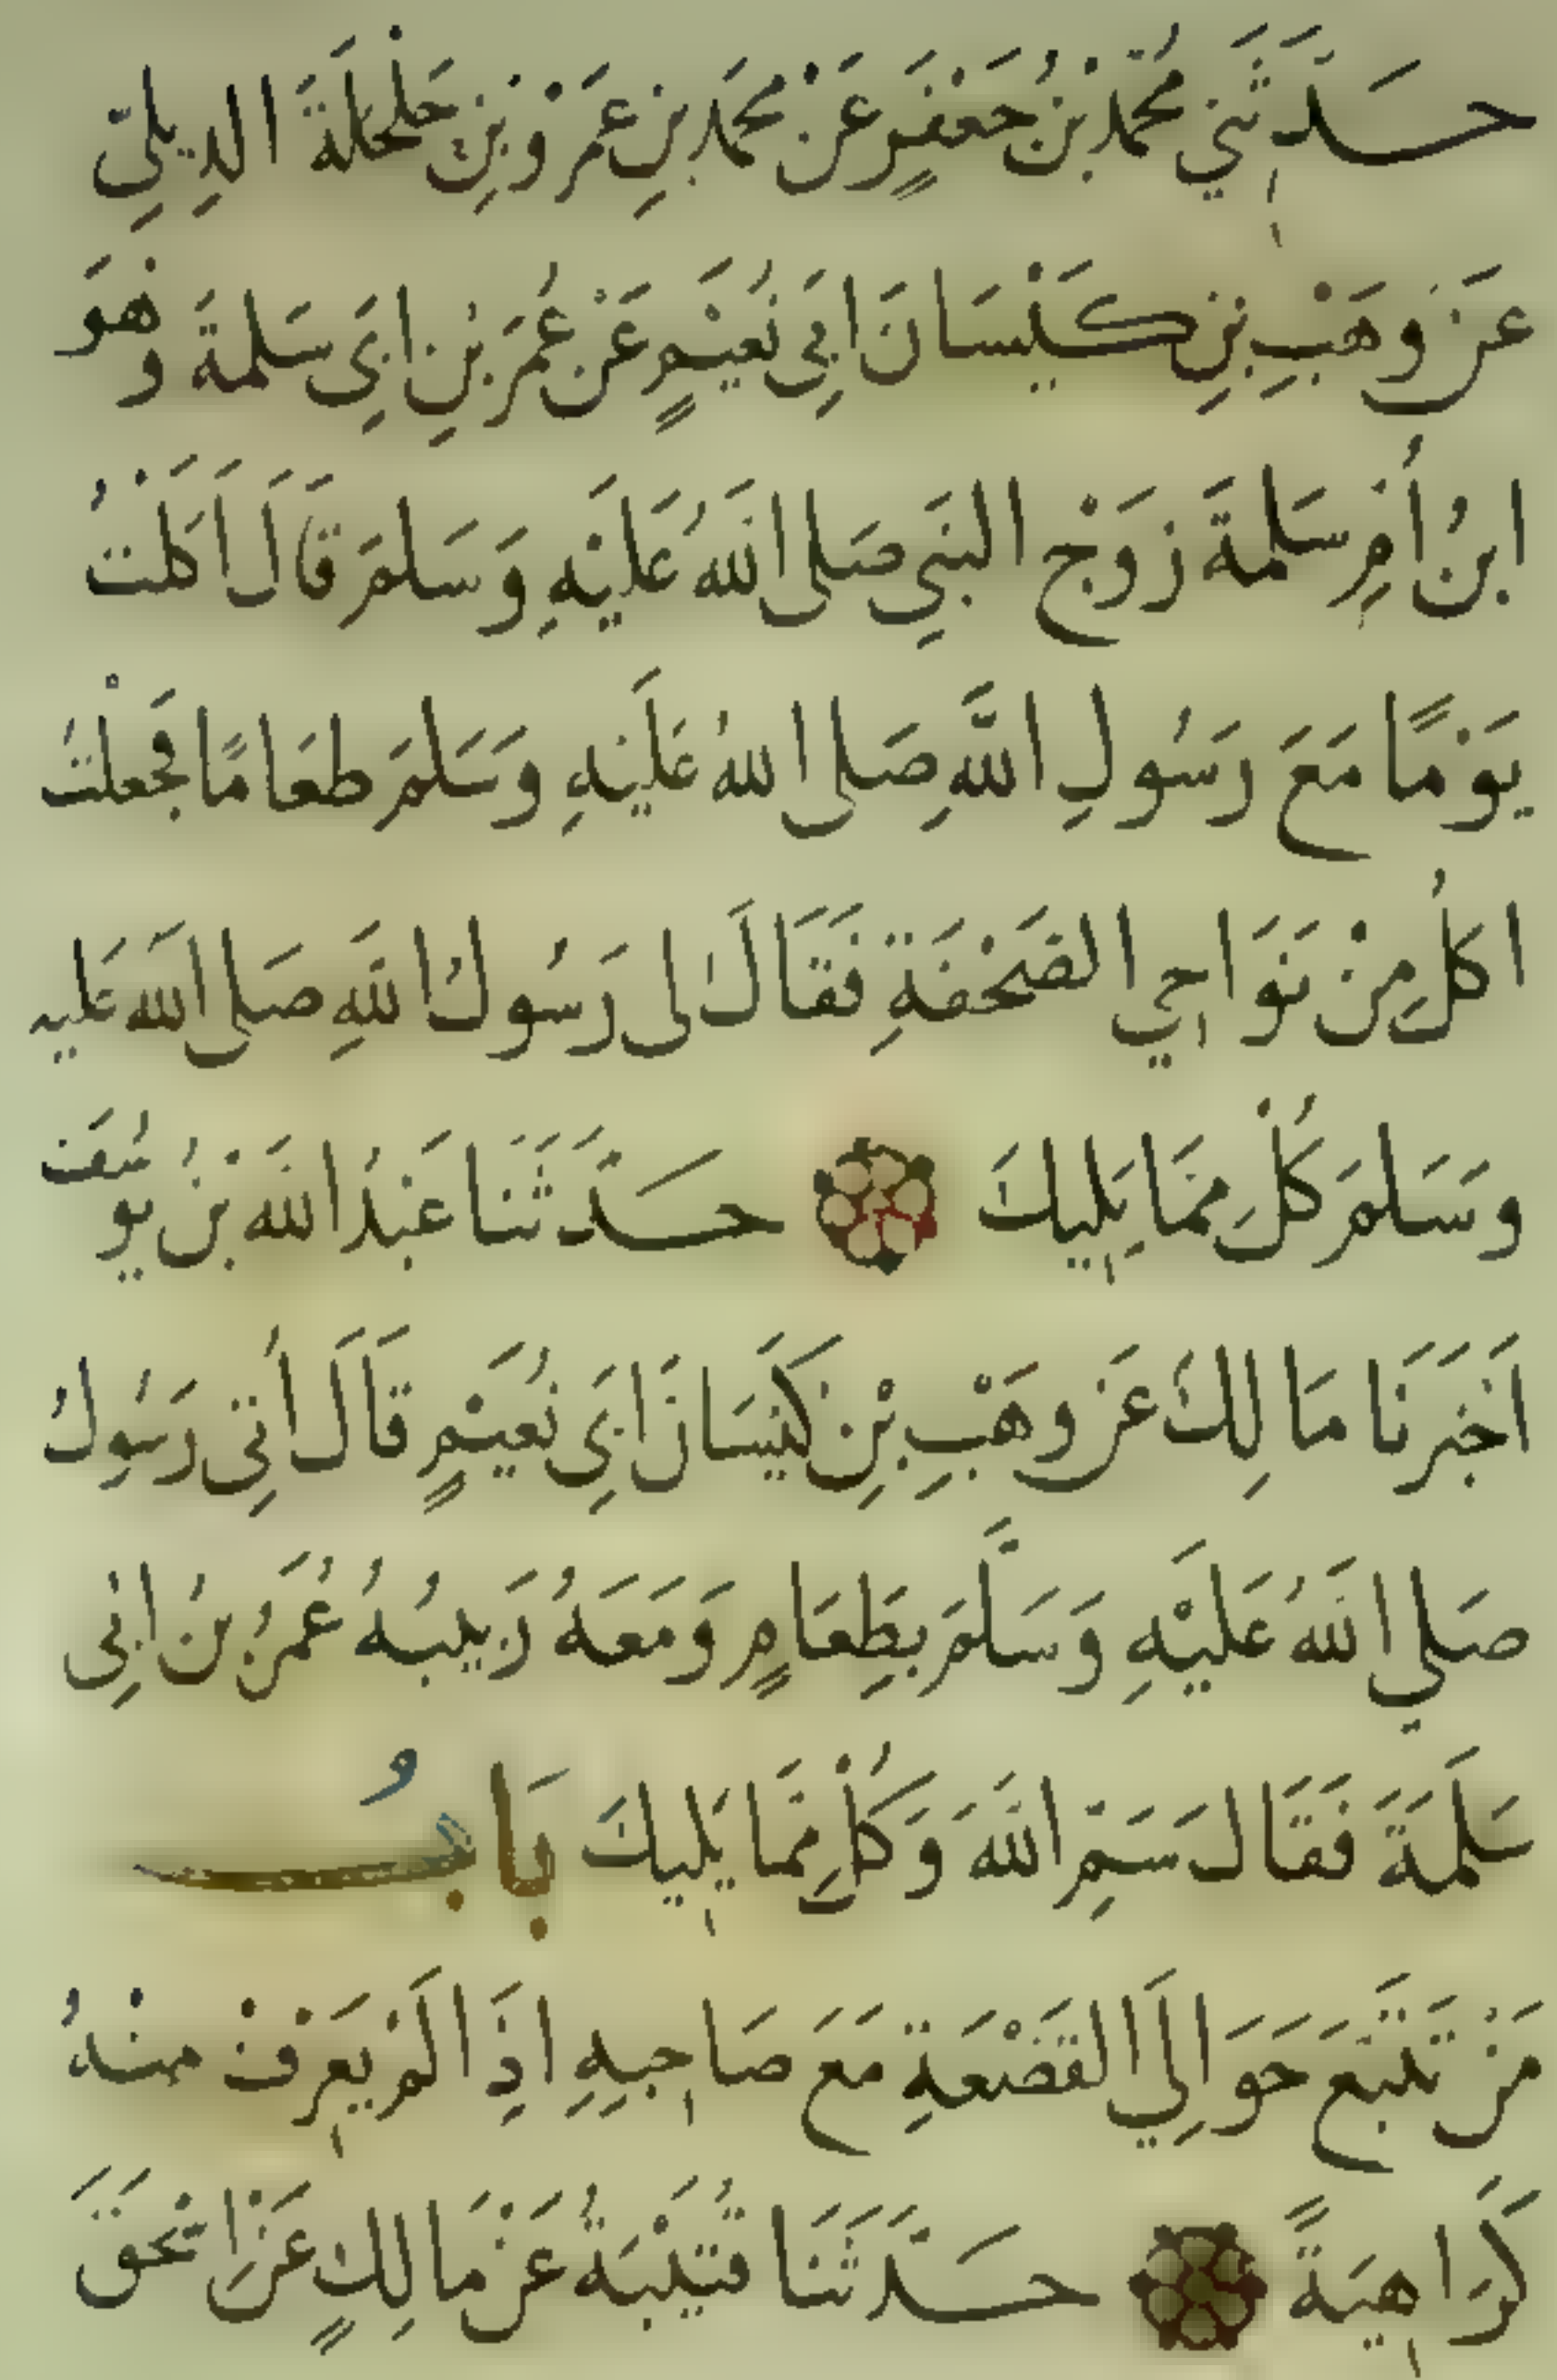 حَدَّثَنِي مُحَمَّدُ بْنُ جَعْفَرٍ عَنْ مُحَمَّدِ بْنِ عَمْرِو بْنِ حَلْحَلَةَ الدِيلِيِّ
عَن وَهْبِ بْنِ كَيْسَانَ اَبِي نُعَيْمٍ عَنْ عُمَرَ بْنِ اَبِي سَلمةَ وَهْوَ
ابنُ أُمِ سَلمةَ زَوْجِ النبَيِ صَلى اللهُ عَلَيْهِ وَسَلمَ قَالَ اَكَلْتُ
يَوْمًا مَعَ رَسُولِ اللَّهِ صَلى اللهُ عَلَيْهِ وَسَلمَ طَعَامًا فَجَعَلْتُ
اكلُ مِنْ نَوَاحِي الصَّحْفَةِ فَقَالَ لى رَسُولُ اللَّهِ صَلى اللَّه عَليه
وَسَلمَ كُلْ مِمَّا يَلِيكَ حَدَّثَنَا عَبْدُ اللَّه بْنُ يُوسُفَ
اَخْبَرَنَا مَالِكٌ عَن وَهْبِ بْنِ كَيْسَانَ اَبِي نُعَيْمٍ قَالَ أُتِىَ رَسُولُ
صَلي اللَّهُ عَلَيْهِ وَسَلَّمَ بِطَعَامٍ وَمَعَهُ رَبِيبُهُ عُمَرُ بْنُ ابِى
سَلَمَةَ فَقَالَ سَمِّ اللَّهَ وَكُلْ مِمَّا يَلِيكَ بَابُ
مَنْ تَتَبَّعَ حَوَالَيِ القَصْعَةِ مَعَ صَاحِبِهِ اِذَا لَمْ يَعرِفْ مِنْهُ
كَرَاهِيَةً حَدَّثَنَا قُتَيْبَةُ عَنْ مَالِكٍ عَنْ اِسْحَقَ